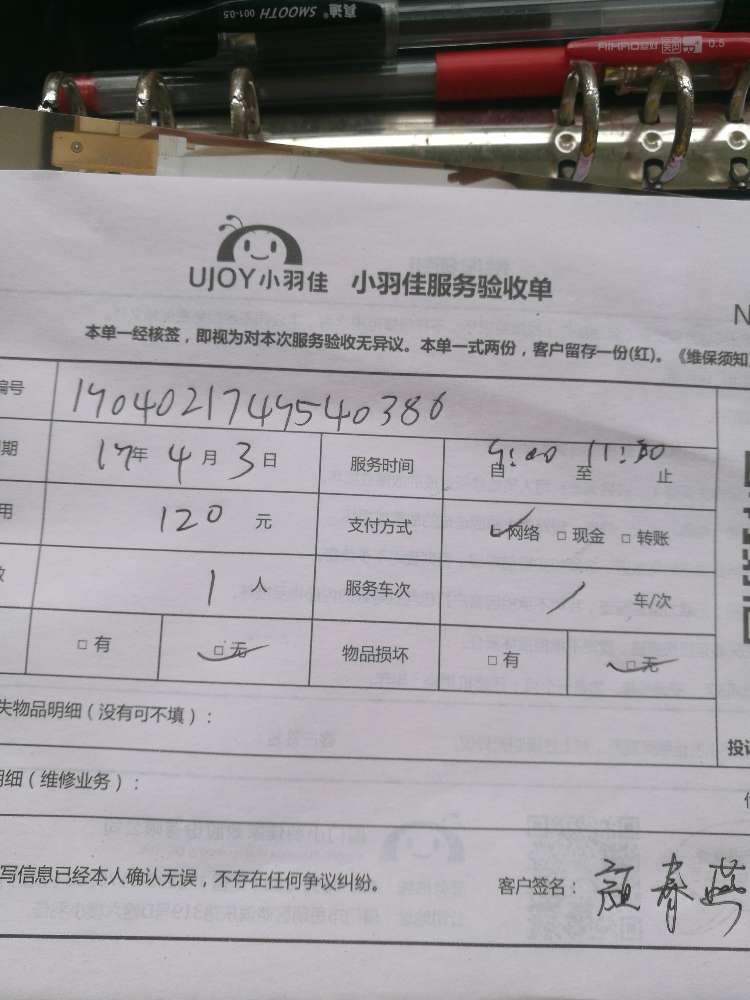 真迪 SMOOTH 001-0.5
AIHAO 0.5
UJOY小羽佳 小羽佳服务验收单
N
本单一经核签，即视为对本次服务验收无异议。本单一式两份，客户留存一份(红)。《维保须知
编号 1704021749540386
期 17年 4月 3日 服务时间 9:00 11:30
自 至 止
用 120 元 支付方式 网络 □现金 □转账
数 1 人 服务车次 / 车/次
□有 □无 物品损坏 □有 □无
失物品明细（没有可不填）：
投诉
明细（维修业务）：
写信息已经本人确认无误，不存在任何争议纠纷。 客户签名：颜春燕